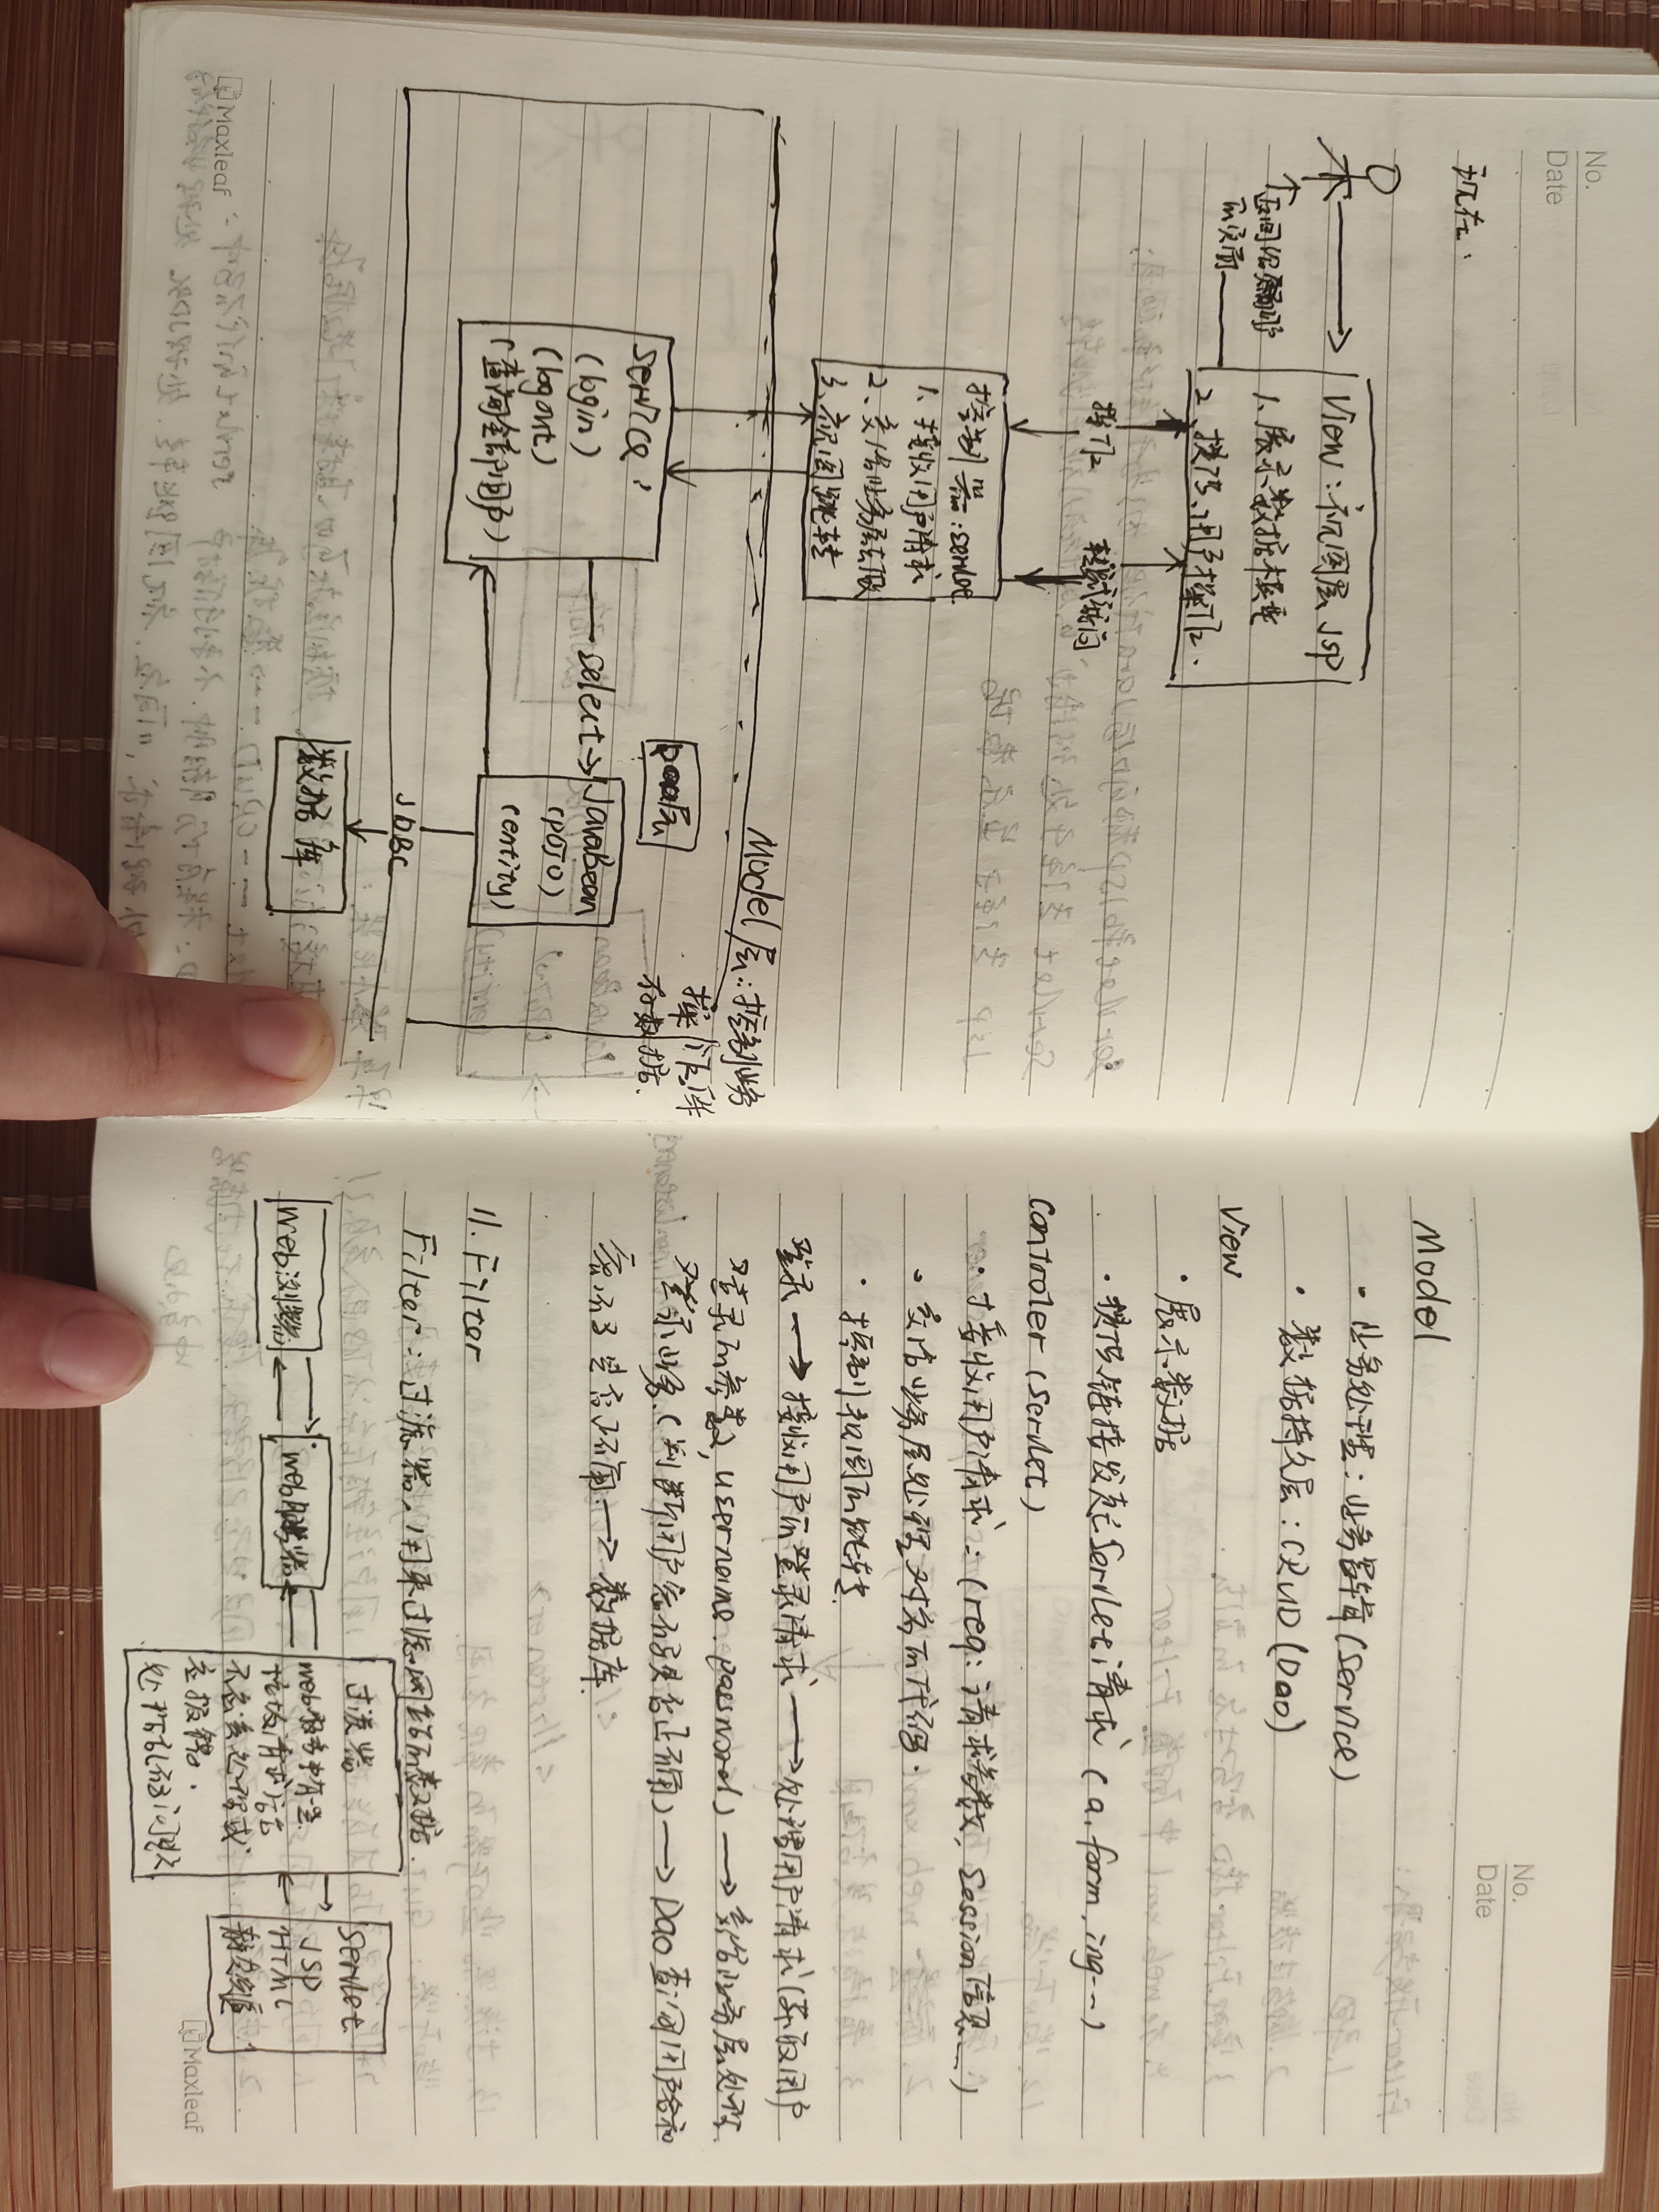 No.
Date
现在.
View:视图层 JSP
1、展示数据模型
2、提供用户操作.
返回给前端
操作
转发或重定向
控制器:servlet
1、接收用户请求
2、交给业务层去做
3、视图跳转
Model层:控制业务
操作保存数据.
Dao层
Service:
(login)
(logout)
(查询全部用户)
select→
JavaBean
(POJO)
(entity)
JDBC
数据库
Maxleaf
No.
Date
Model
• 业务处理:业务逻辑(Service)
• 数据持久层:CRUD(Dao)
View
• 展示数据
• 提供链接发起Servlet请求(a.form.img…)
Controler(Servlet)
• 接收用户请求:(req:请求参数,Session信息…)
• 交给业务层处理对应的代码.
• 控制视图的跳转
登录→接收用户的登录请求→处理用户请求(获取用户
登录的参数,username.password)→交给业务层处理
登录业务(判断用户名密码是否正确)→Dao查询用户名和
密码是否正确→数据库.
11.Filter
Filter:过滤器,用来过滤网络的数据.
web浏览器
web服务器
过滤器
Servlet
JSP
HTML
Maxleaf